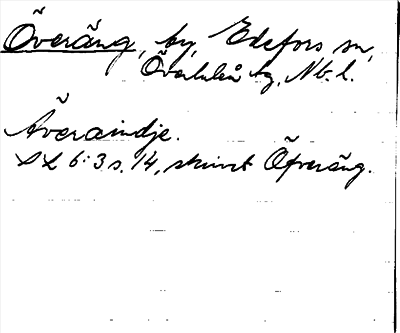 Överäng, by, Edefors sn,
Överluleå tg, Nb. l.
Averaindje.
SL 6:3 s. 14, skrivet Öfveräng.